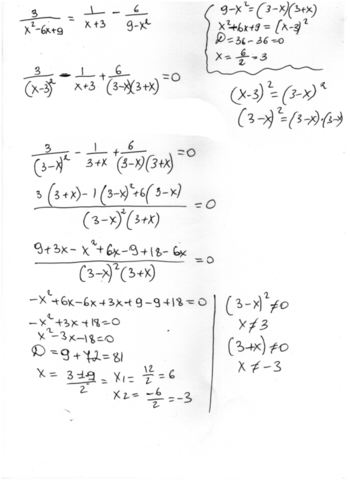 3/(x²-6x+9) = 1/(x+3) - 6/(9-x²)
9-x² = (3-x)(3+x)
x²-6x+9 = (x-3)²
D = 36-36 = 0
x = 6/2 = 3
3/(x-3)² - 1/(x+3) + 6/((3-x)(3+x)) = 0
(x-3)² = (3-x)²
(3-x)² = (3-x)·(3-x)
3/(3-x)² - 1/(3+x) + 6/((3-x)(3+x)) = 0
(3(3+x) - 1(3-x)² + 6(3-x))/((3-x)²(3+x)) = 0
(9+3x-x²+6x-9+18-6x)/((3-x)²(3+x)) = 0
-x²+6x-6x+3x+9-9+18=0
-x²+3x+18=0
x²-3x-18=0
D = 9+72 = 81
x = (3±9)/2 = x1 = 12/2 = 6
x2 = -6/2 = -3
(3-x)² ≠ 0
x ≠ 3
(3+x) ≠ 0
x ≠ -3